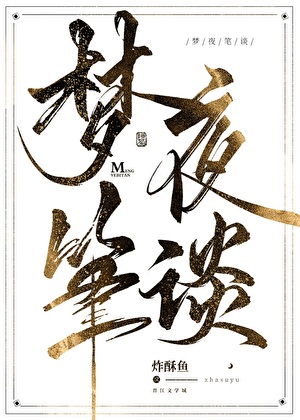 / 梦 / 夜 / 笔 / 谈 /
梦夜
笔谈
MENG
YEBITAN
炸酥鱼
zhasuyu
晋江文学城